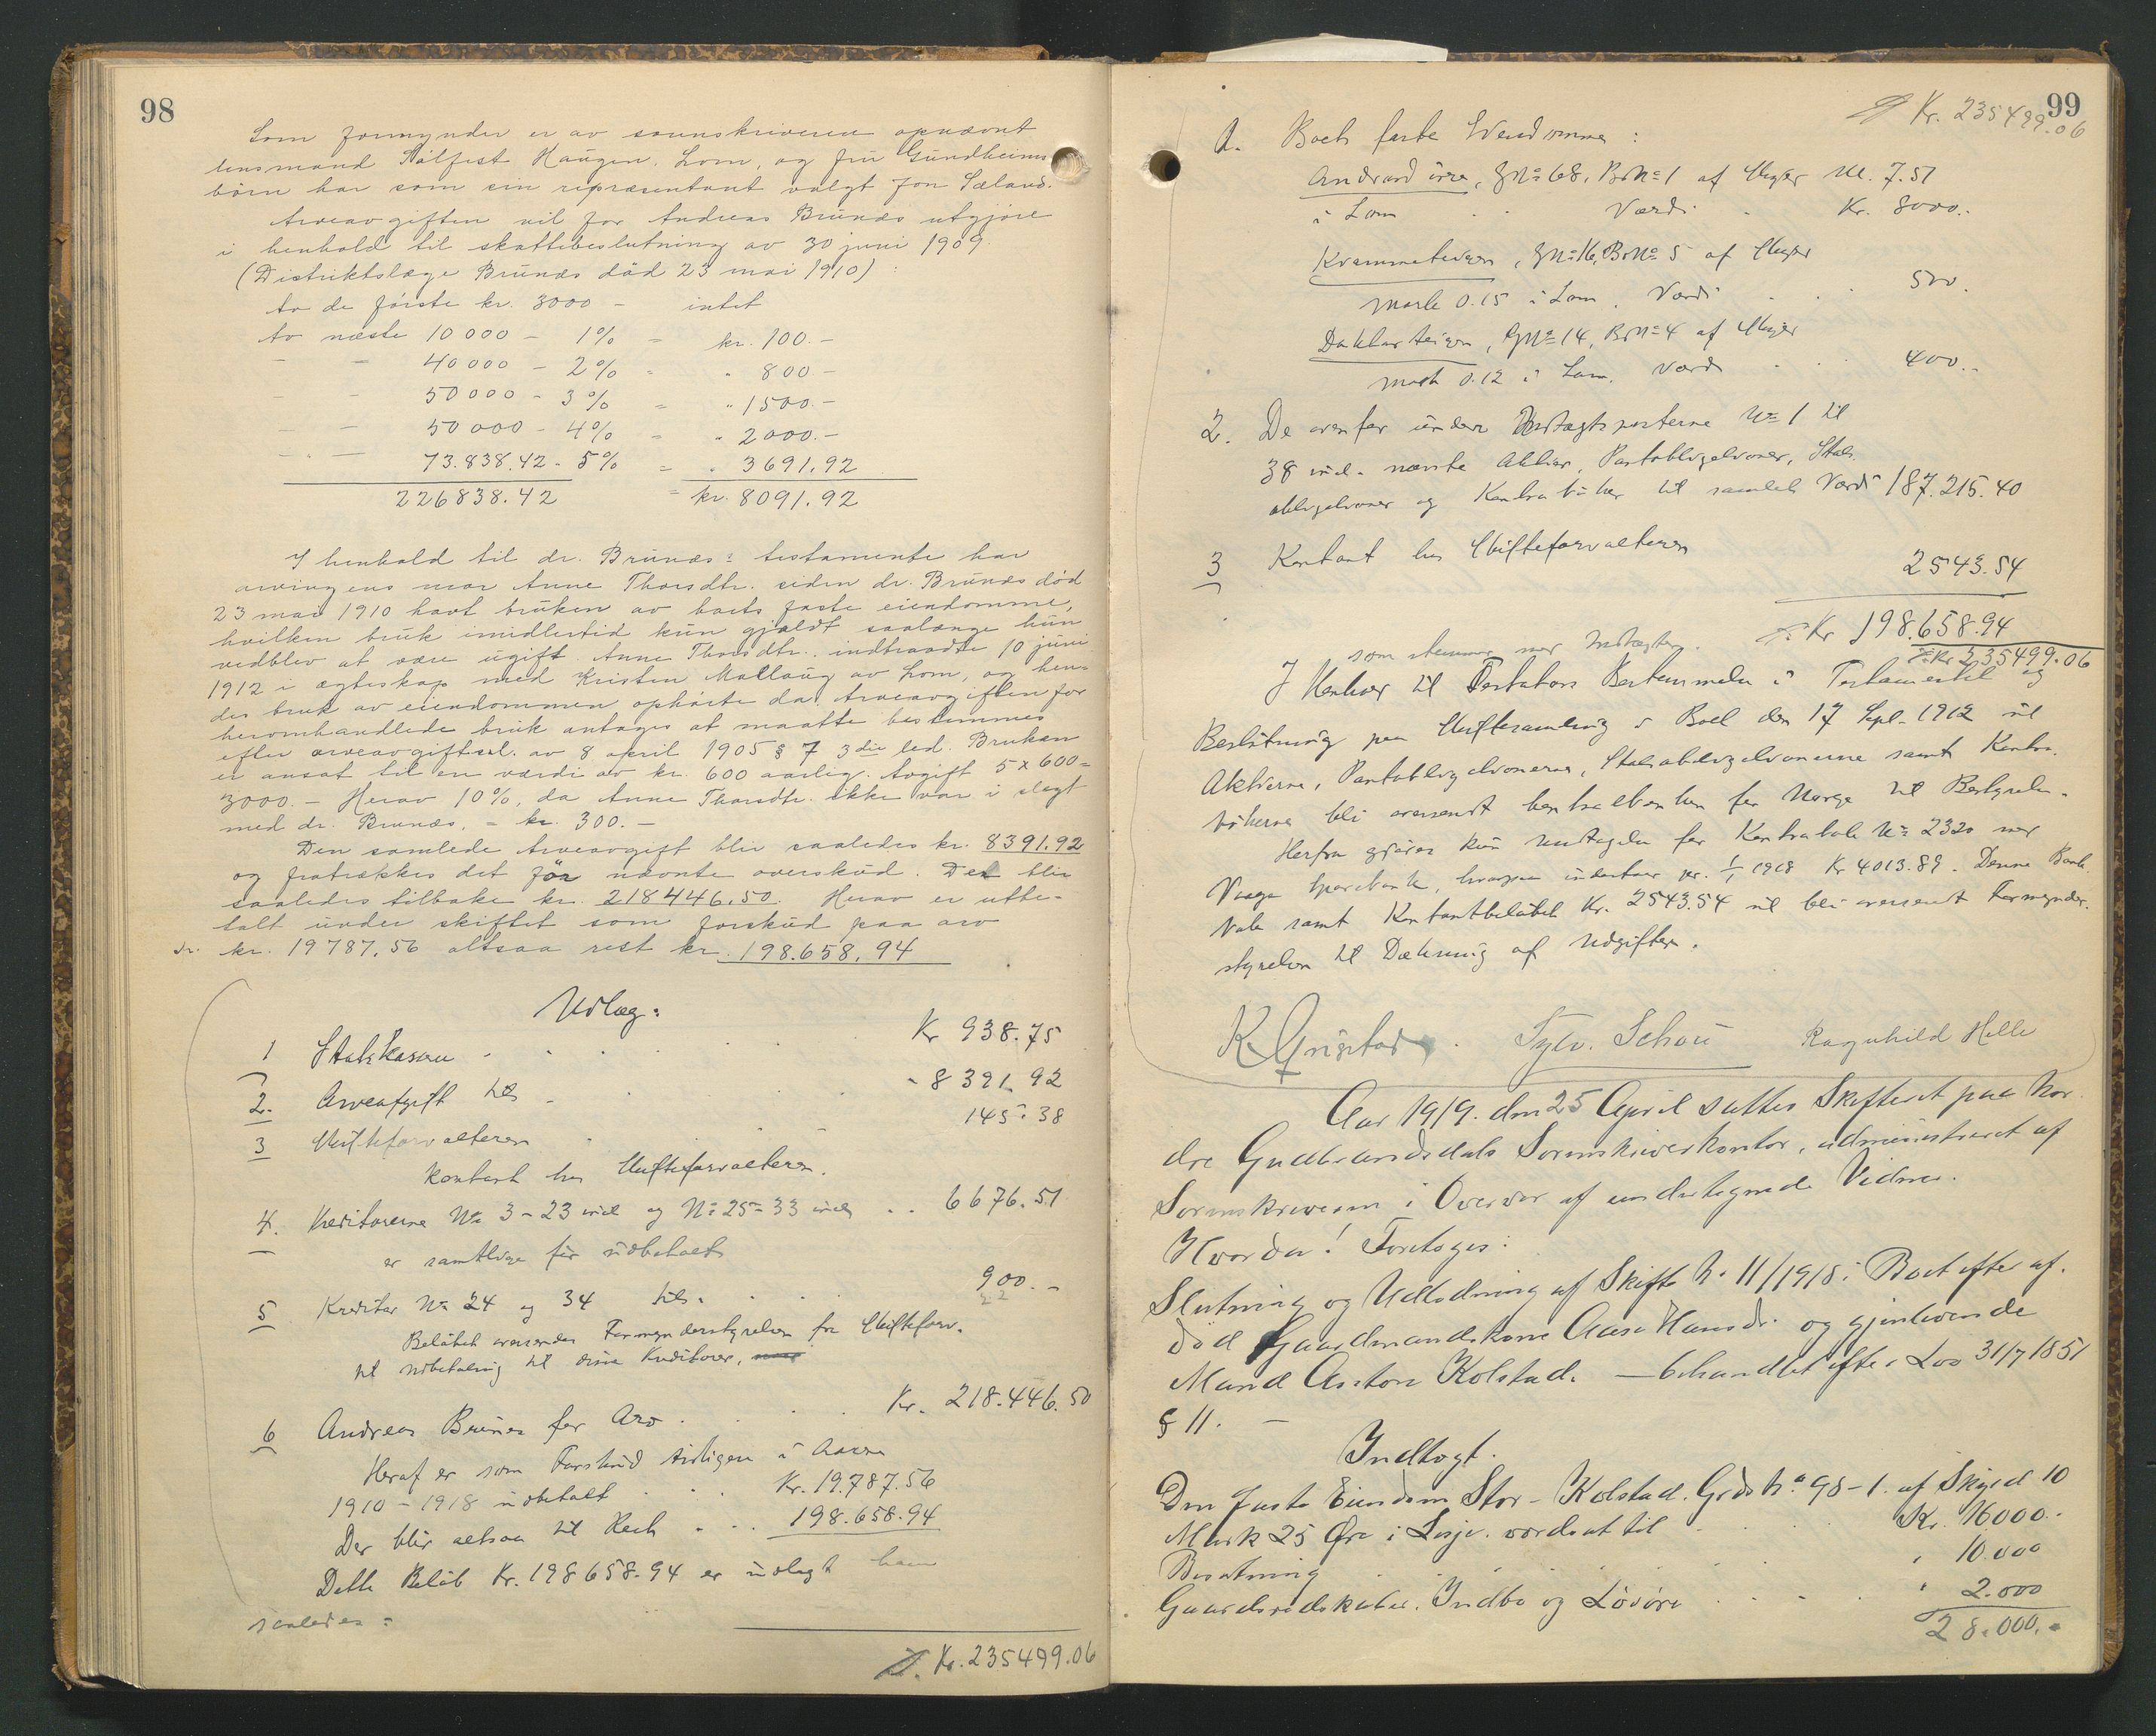 98
Som formynder er av sorenskriveren opnævnt
lensmand Haugen, Lom, og fru Gundheims
börn har som sin repræsentant valgt Jon Sæland.
Arveavgiften vil for Andreas Brunæs utgjöre
i henhold til skattebeslutning av 30 juni 1909.
(Distriktslæge Brunæs död 23 mai 1910) :
av de første kr. 3000 - intet
av næste 10 000 - 1% = kr. 100.-
- - 40 000 - 2% = " 800.-
- - 50 000 - 3% = " 1500.-
- - 50 000 - 4% = " 2000.-
- - 73.838.42 - 5% = " 3691.92
226838.42 = kr. 8091.92
I henhold til dr. Brunæs: testamente har
arvingens mor Anne Thorsdtr. siden dr. Brunæs död
23 mai 1910 havt bruken av boets faste eiendomme,
hvilken bruk imidlertid kun gjaldt saalænge hun
vedblev at være ugift. Anne Thorsdtr. indtraadte 10 juni
1912 i ægteskap med Kristen Mollaug av Lom, og hen-
des bruk av eiendommen ophörte da. Arveavgiften for
heromhandlede bruk antages at maatte bestemmes
efter arveavgiftsl. av 8 april 1905 § 7 3die led. Bruken
er ansat til en værdi av kr. 600 aarlig. Avgift 5 x 600 =
3000.- Herav 10%, da Anne Thorsdtr. ikke var i slegt
med dr. Brunæs, = kr. 300.-
Den samlede Arveavgift blir saaledes kr. 8391.92
og fratrækkes det för nævnte overskud. Det blir
saaledes tilbake kr. 218446.50. Herav er utbe-
talt under skiftet som forskud paa arv
kr. 19787.56 altsaa rest kr. 198.658.94
Udlæg:
1 Statskassen . . . Kr 938.75
2. Arveafgift . . . " 8391.92
3 Skifteforvalteren . . . 145.38
kontant hos Skifteforvalteren.
4. Kreditorerne No 3-23 incl og No 25-33 incl . . 6676.51
er samtlige før udbetalt
5 Kreditor No 24 og 34 . . . 900.-
Beløbet oversendes Formynderstyrelsen fra Skifteforv.
til udbetaling til disse Kreditorer,
6 Andreas Brunes for Arv . . . Kr. 218.446.50
Heraf er som Forskud tidligere i Aarene
1910-1918 udbetalt . . . Kr. 19.787.56
Der blir altsaa til Rest . . . 198.658.94
Dette Beløb Kr. 198658.94 er udlagt ham
saaledes:
Kr. 235499.06
99
Kr. 235499.06
1. Boets faste Eiendomme:
Andvord øvre, GNo 68, BrNo 1 af Skyld Mk. 7.51
i Lom . . Værdi . Kr. 8000..
, GNo 16, BrNo 5 af Skyld
mark 0.15 i Lom. Værdi . . . 500.
, GNo 14, BrNo 4 af Skyld
mark 0.12 i Lom. Værdi . . 400.-
2. De ovenfor under Indtægtsposterne No 1 til
38 incl. nævnte Aktier, Pantobligationer, Stats-
obligationer og Kontrabøker til samlet Værdi 187.215.40
3 Kontant hos Skifteforvalteren
2543.54
Kr 198.658.94
som stemmer med Indtægten. Kr 235499.06
I Henhold til Testators Bestemmelse i Testamentet og
Beslutning paa Skiftesamling i Boet den 17 Sept. 1912 vil
Aktierne, Pantobligationerne, Statsobligationerne samt Kontra-
bøkerne bli oversendt Centralbanken for Norge til Bestyrelse.
Herfra gjøres kun Undtagelse for Kontrabok No 2320 med
Vaage Sparebank, hvorpaa indestaar pr. 1/1 1918 Kr 4013.89. Denne Bank-
bok samt Kontantbeløbet Kr. 2543.54 vil bli oversendt Formynder-
styrelsen til Dækning af Udgifter.
Sylv. Schou Ragnhild Helle
Aar 1919. den 25 April sattes Skifteret paa Nor-
dre Gudbrandsdals Sorenskriverkontor, administreret af
Sorenskriveren i Overvær af undertegnede Vidner.
Hvorda! Foretoges:
Slutning og Udlodning af Skifte No 11/1918 i Boet efter af-
död Gaardmandskone Aase Hansdr. og gjenlevende
Mand Anton Kolstad. - behandlet efter Lov 31/7 1851
§ 11. -
Indtægt.
Den faste Eiendom Stor-Kolstad. Grds No 98-1. af Skyld 10
Mark 25 Øre i Lesje. værdsat til . . . Kr. 16000.-
Besætning . . . . . " 10.000
Gaardsredskaber. Indbo og Lösöre . . . " 2.000
28.000.-